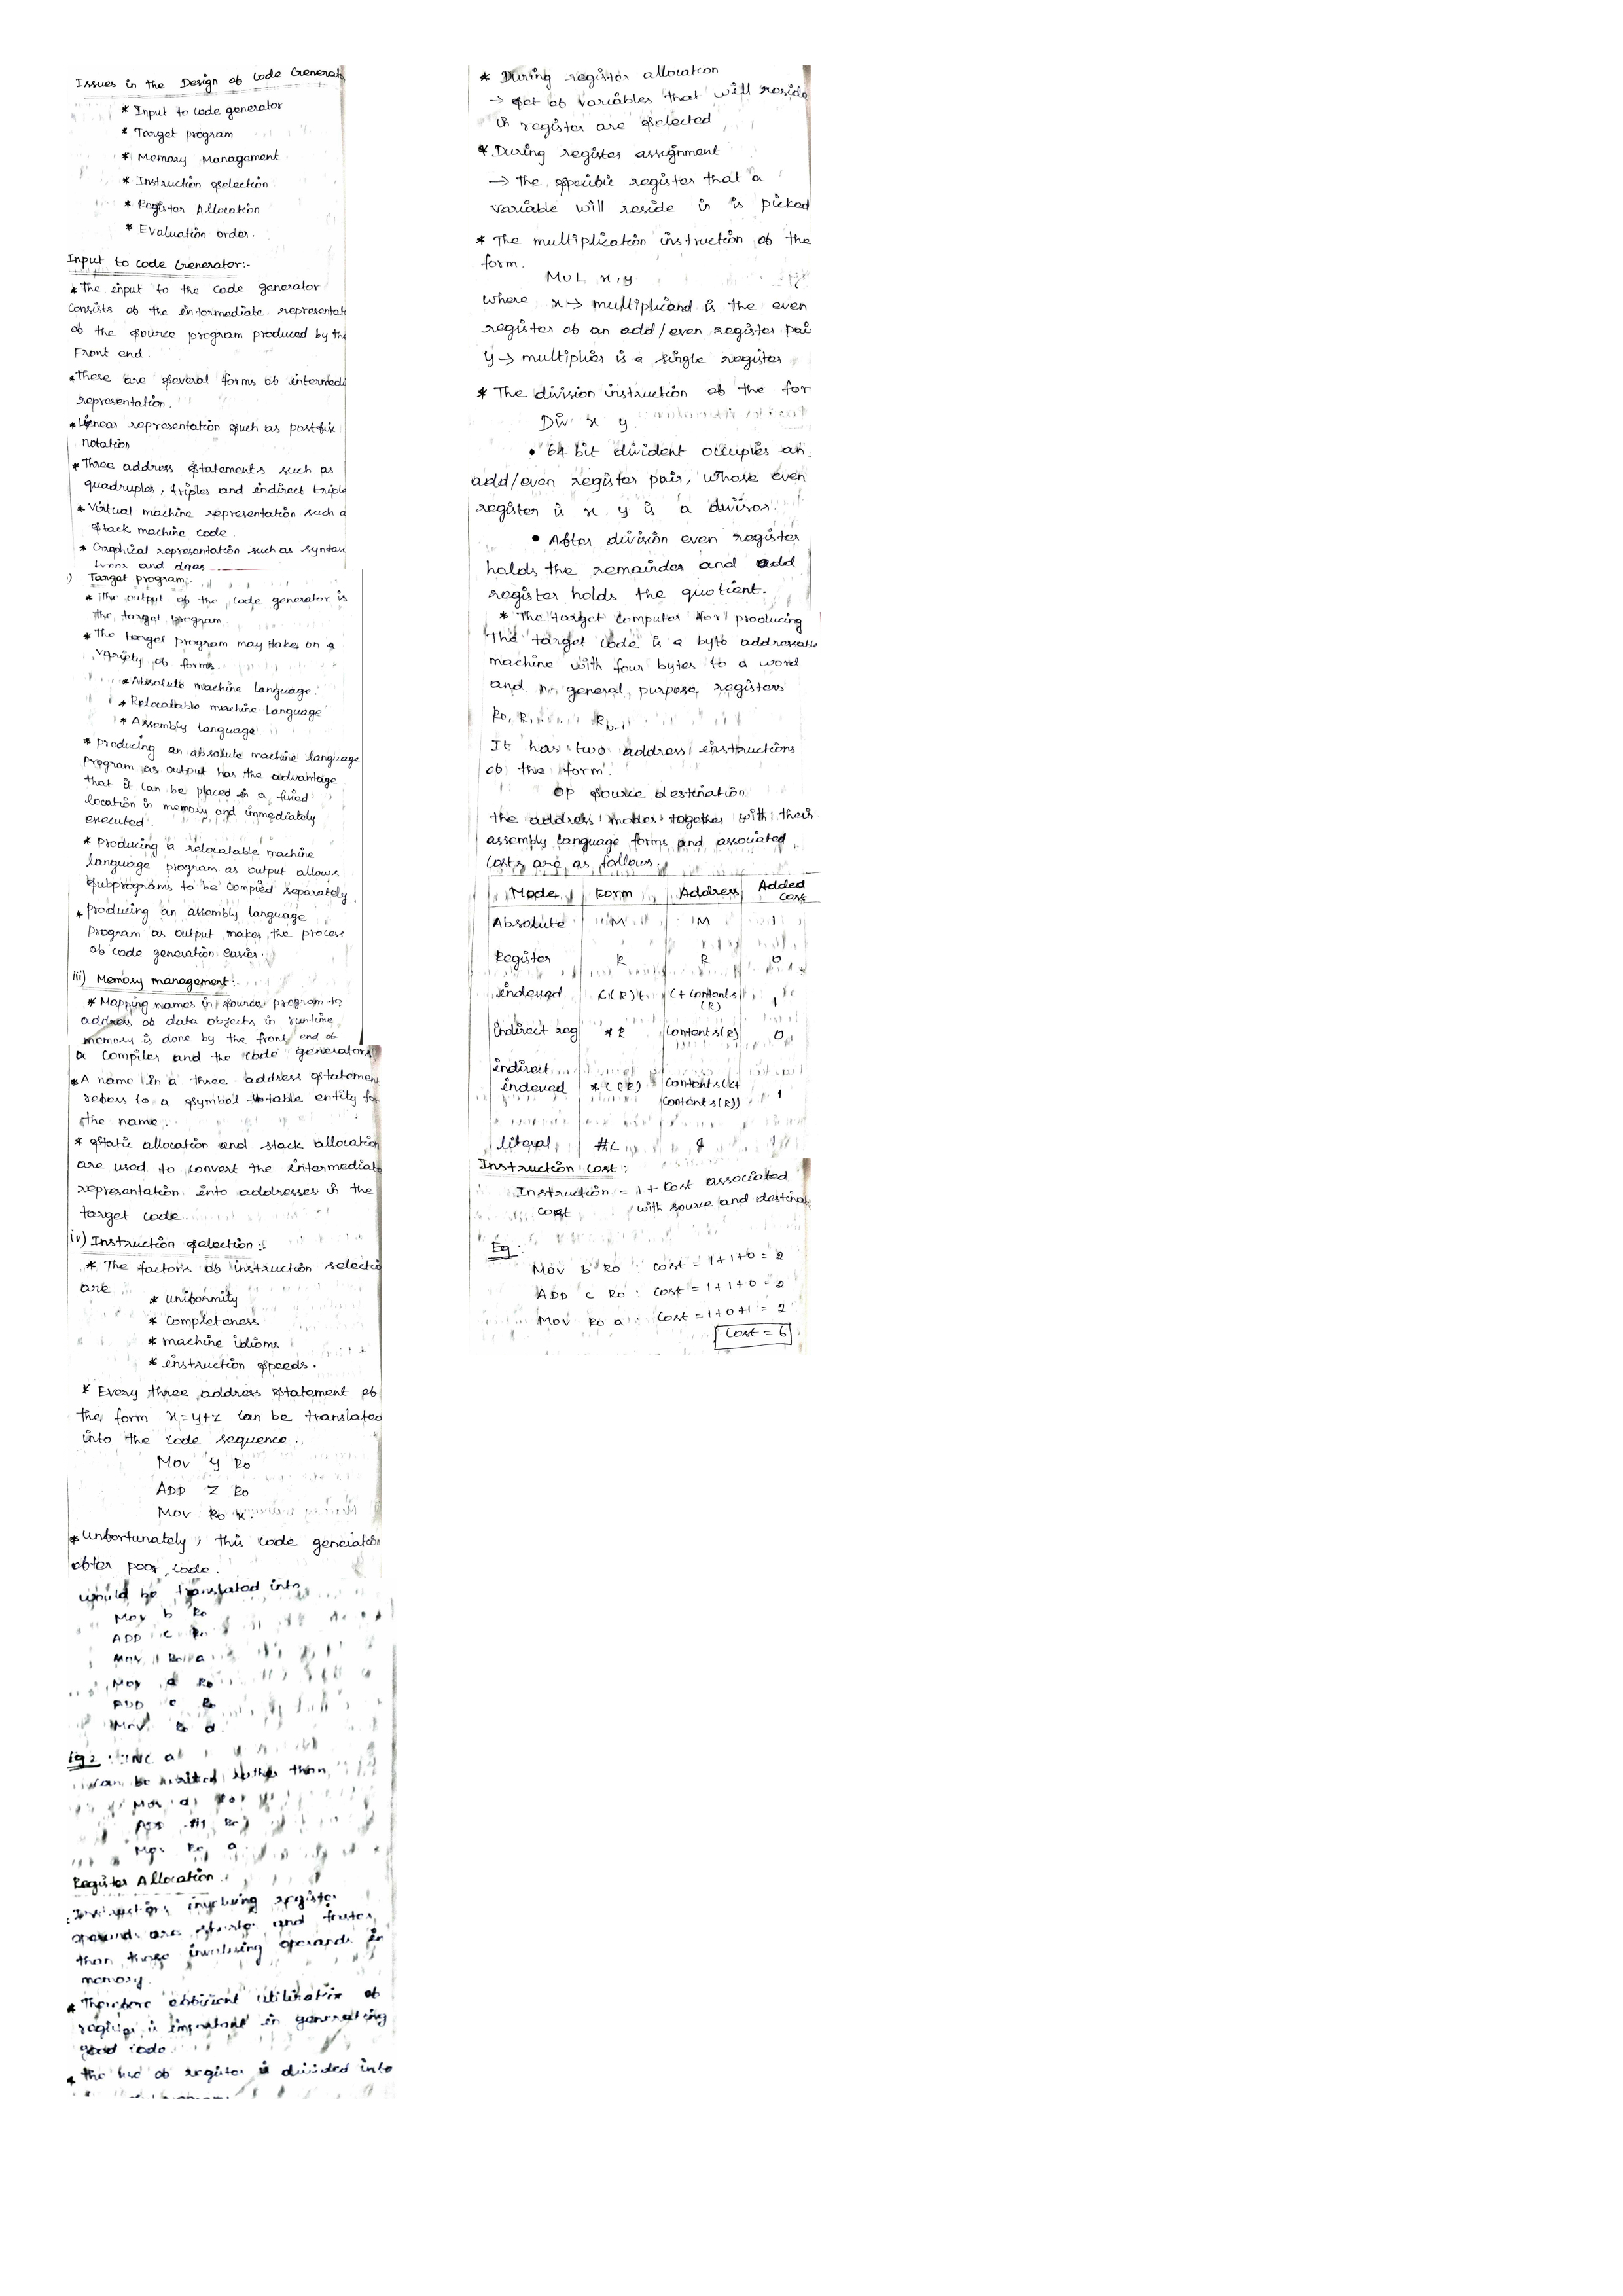 Issues in the Design of Code Generat
* Input to code generator
* Target program
* Memory Management
* Instruction selection
* Register Allocation
* Evaluation order.
Input to Code Generator:-
* The input to the code generator
consists of the intermediate representat
of the source program produced by the
Front end.
* These are several forms of intermedi
representation.
* Linear representation such as postfix
notation
* Three address statements such as
quadruples, triples and indirect triple
* Virtual machine representation such a
stack machine code.
* Graphical representation such as syntax
trees and dags
i) Target program:-
* The output of the code generator is
the target program
* The target program may takes on a
variety of forms.
* Absolute machine language.
* Relocatable machine language
* Assembly language
* producing an absolute machine language
program as output has the advantage
that it can be placed in a fixed
location in memory and immediately
executed.
* producing a relocatable machine
language program as output allows
subprograms to be compied separately.
* producing an assembly language
program as output makes the process
of code generation easier.
iii) Memory management:-
* Mapping names in source program to
address of data objects in runtime
memory is done by the front end of
a compiler and the code generators.
* A name in a three address statemen
refers to a symbol table entity for
the name.
* static allocation and stack allocation
are used to convert the intermediate
representation into addresses in the
target code.
iv) Instruction selection:-
* The factors of instruction selectio
are
* uniformity
* completeness
* machine idioms
* instruction speeds.
* Every three address statement of
the form x=y+z can be translated
into the code sequence.
Mov y R0
ADD z R0
Mov R0 x
* unfortunately, this code generation
often poor code.
would be translated into
Mov b R0
ADD c R0
Mov R0 a
Mov d R0
ADD c R0
Mov R0 d
Eg 2: INC a
can be written rather than
Mov a R0
ADD #1 R0
Mov R0 a
Register Allocation
Instructions involving register
operands are shorter and faster
than those involving operands in
memory.
* Therefore efficient utilization of
register is important in generating
good code.
* The use of register is divided into
* During register allocation
→ set of variables that will reside
in register are selected
* During register assignment
→ the specific register that a
variable will reside in is picked
* The multiplication instruction of the
form.
MUL x,y.
where x→ multiplicand is the even
register of an add/even register pai
y→ multiplier is a single register
* The division instruction of the for
Div x y
• 64 bit divident occupies an
add/even register pair, whose even
register is x y is a divisor.
• After division even register
holds the remainder and add
register holds the quotient.
* The target computer for producing
The target code is a byte addressable
machine with four bytes to a word
and n general purpose registers
R0, R1
It has two address instructions
of the form.
op source destination
the address modes together with their
assembly language forms and associated
costs are as follows.
Mode Form Address Added Cost
Absolute M M 1
Register R R 0
indexed C(R) C+contents (R) 1
indirect reg *R contents(R) 0
indirect
indexed *C(R) contents(C+
contents(R)) 1
Literal #C 1
Instruction cost:
Instruction = 1+ cost associated
cost with source and destinat
Eg:
Mov b R0 : cost = 1+1+0 = 2
ADD c R0 : cost = 1+1+0 = 2
Mov R0 a : cost = 1+0+1 = 2
Cost = 6